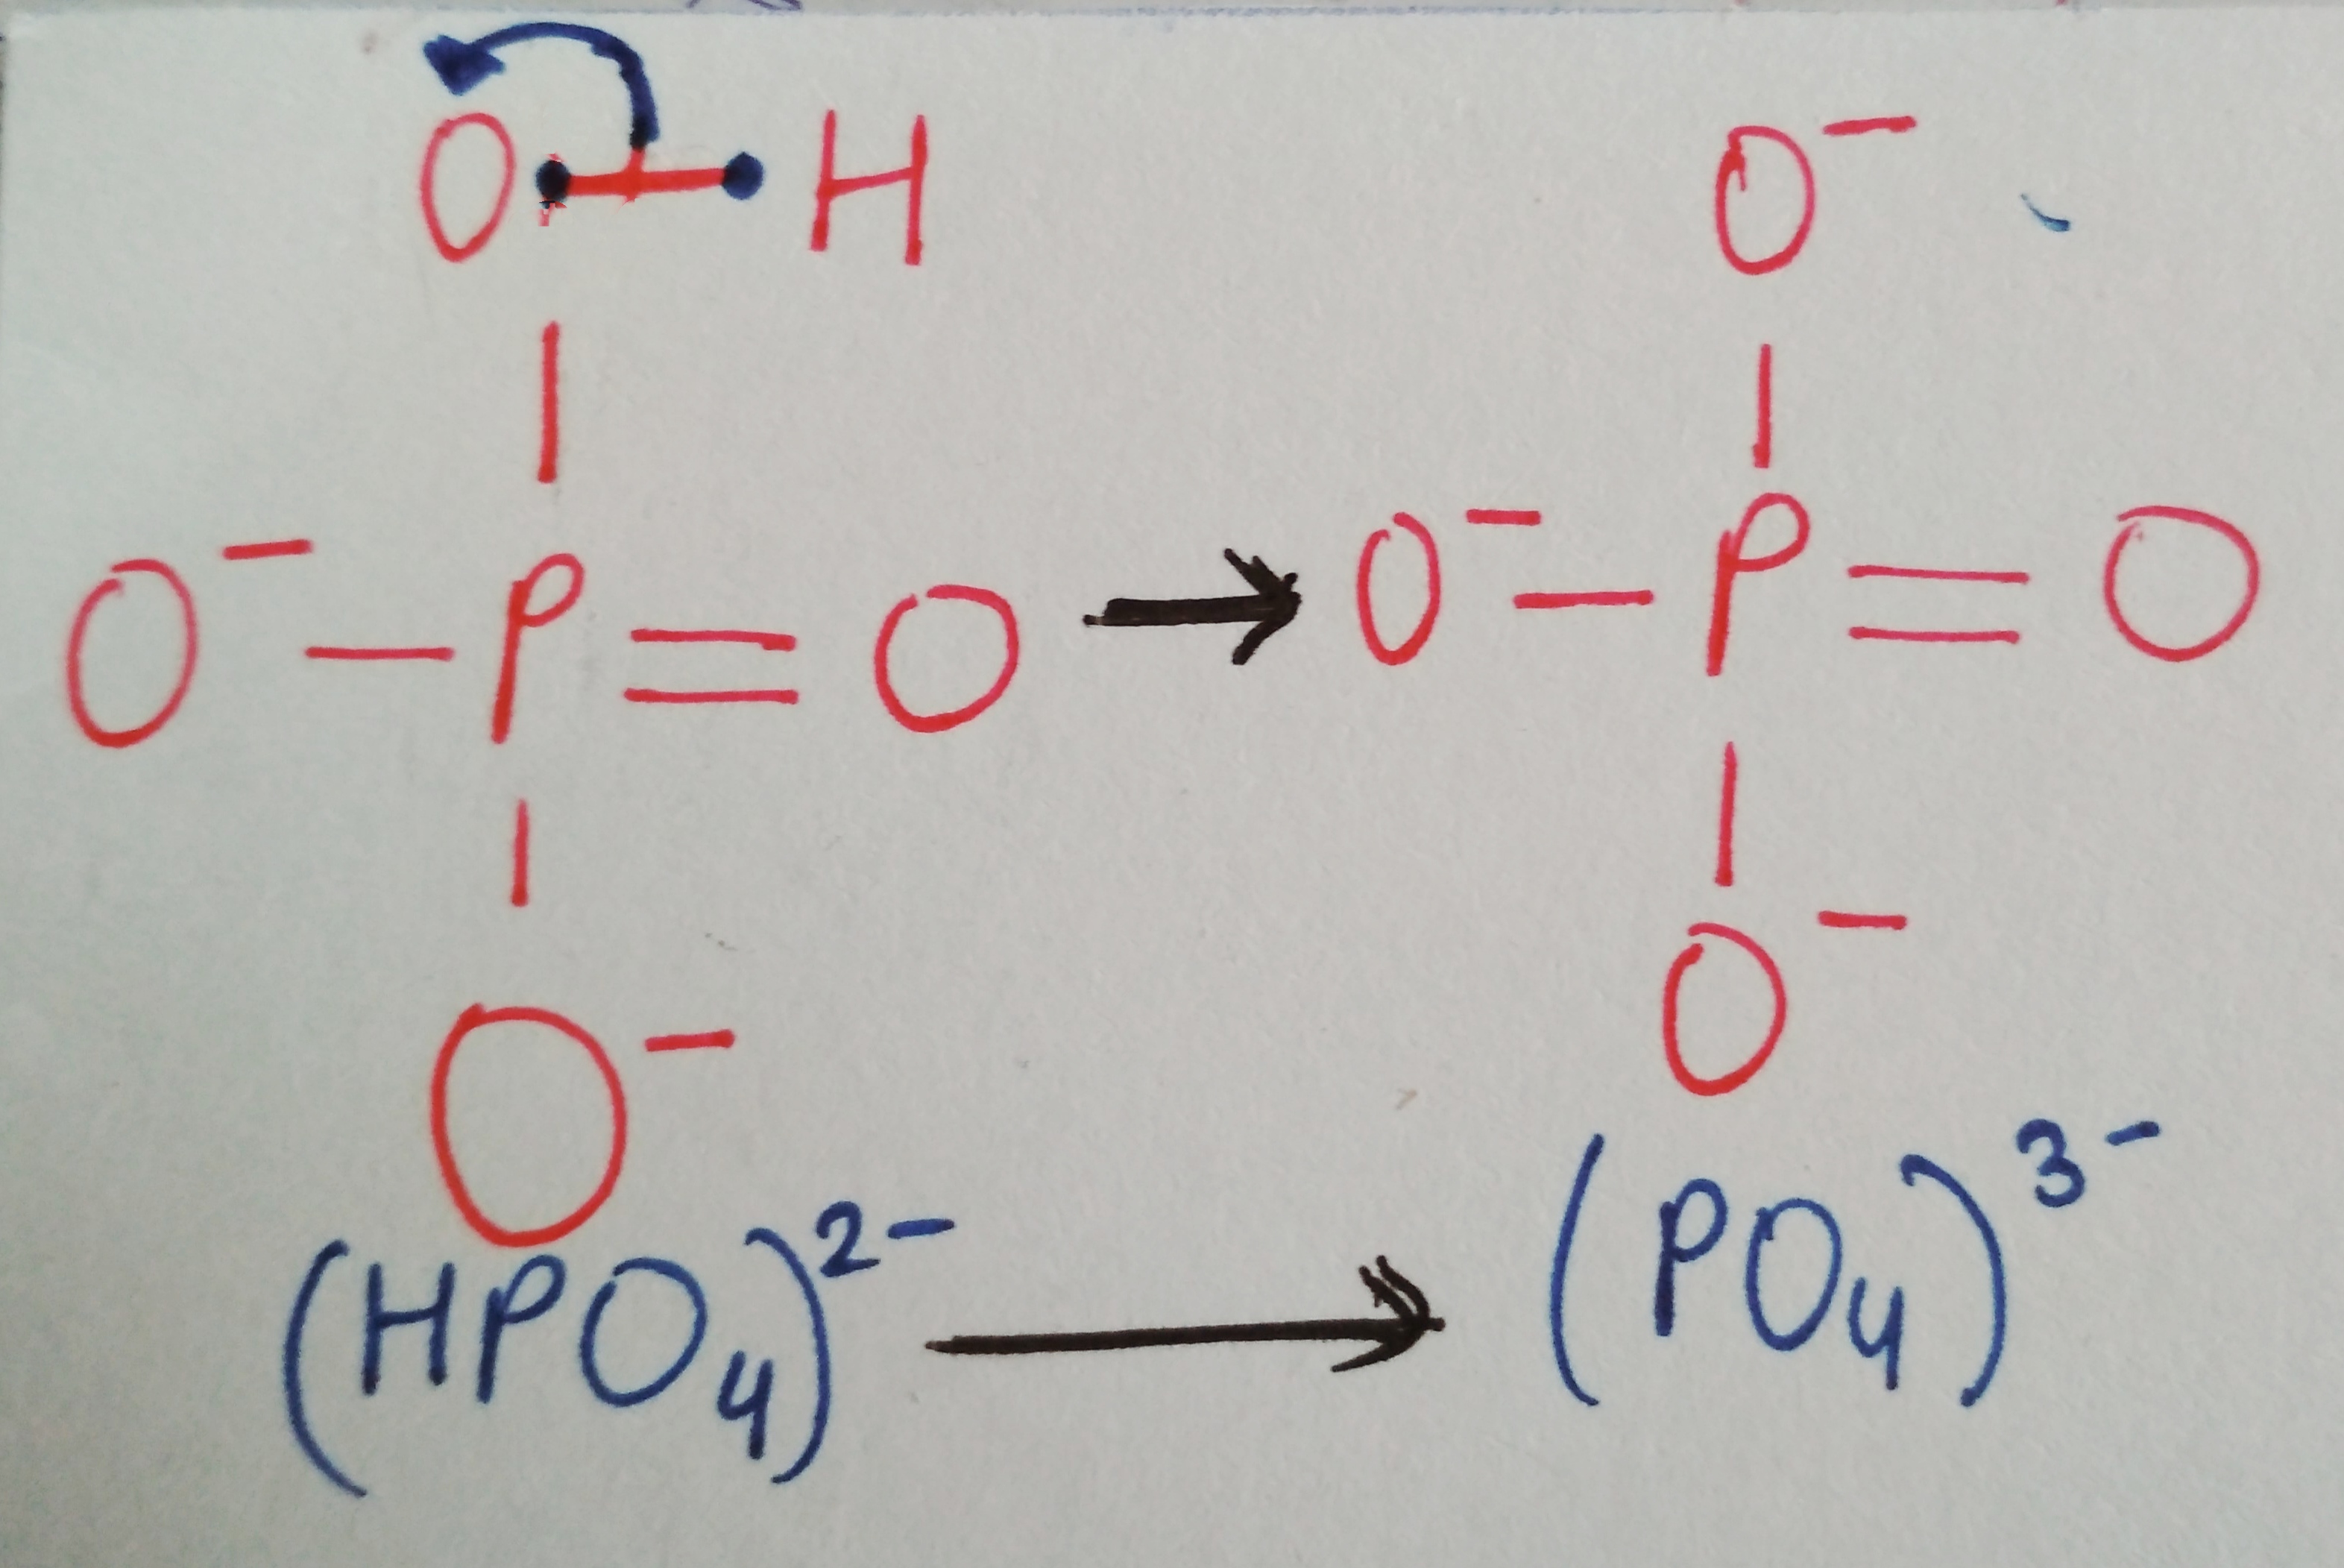 O H O⁻
O⁻ — P = O → O⁻ — P = O
O⁻ O⁻
(HPO₄)²⁻ → (PO₄)³⁻